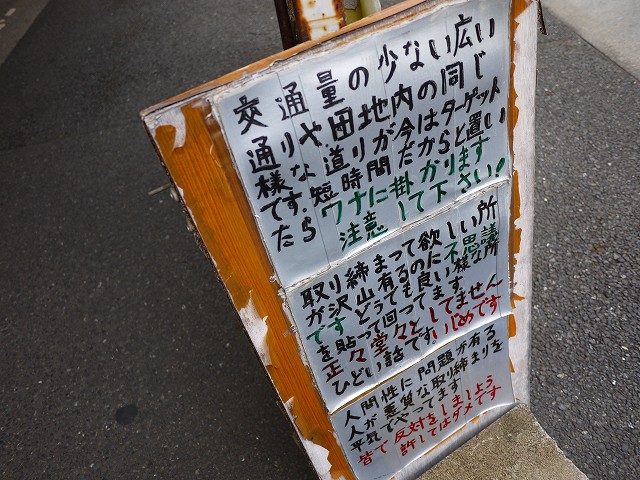 交通量の少ない広い
通りや団地内の同じ
様な道りが今はターゲット
です。短時間だからと置い
たらワナに掛かります
注意して下さい!
取り締まって欲しい所
が沢山有るのに不思議
です どうでも良い様な所
を貼って回ってます
正々堂々としてません
ひどい話です。いじめです
人間性に問題が有る
人が悪質な取り締まりを
平気でやってます
皆で反対をしましょう
許してはダメです